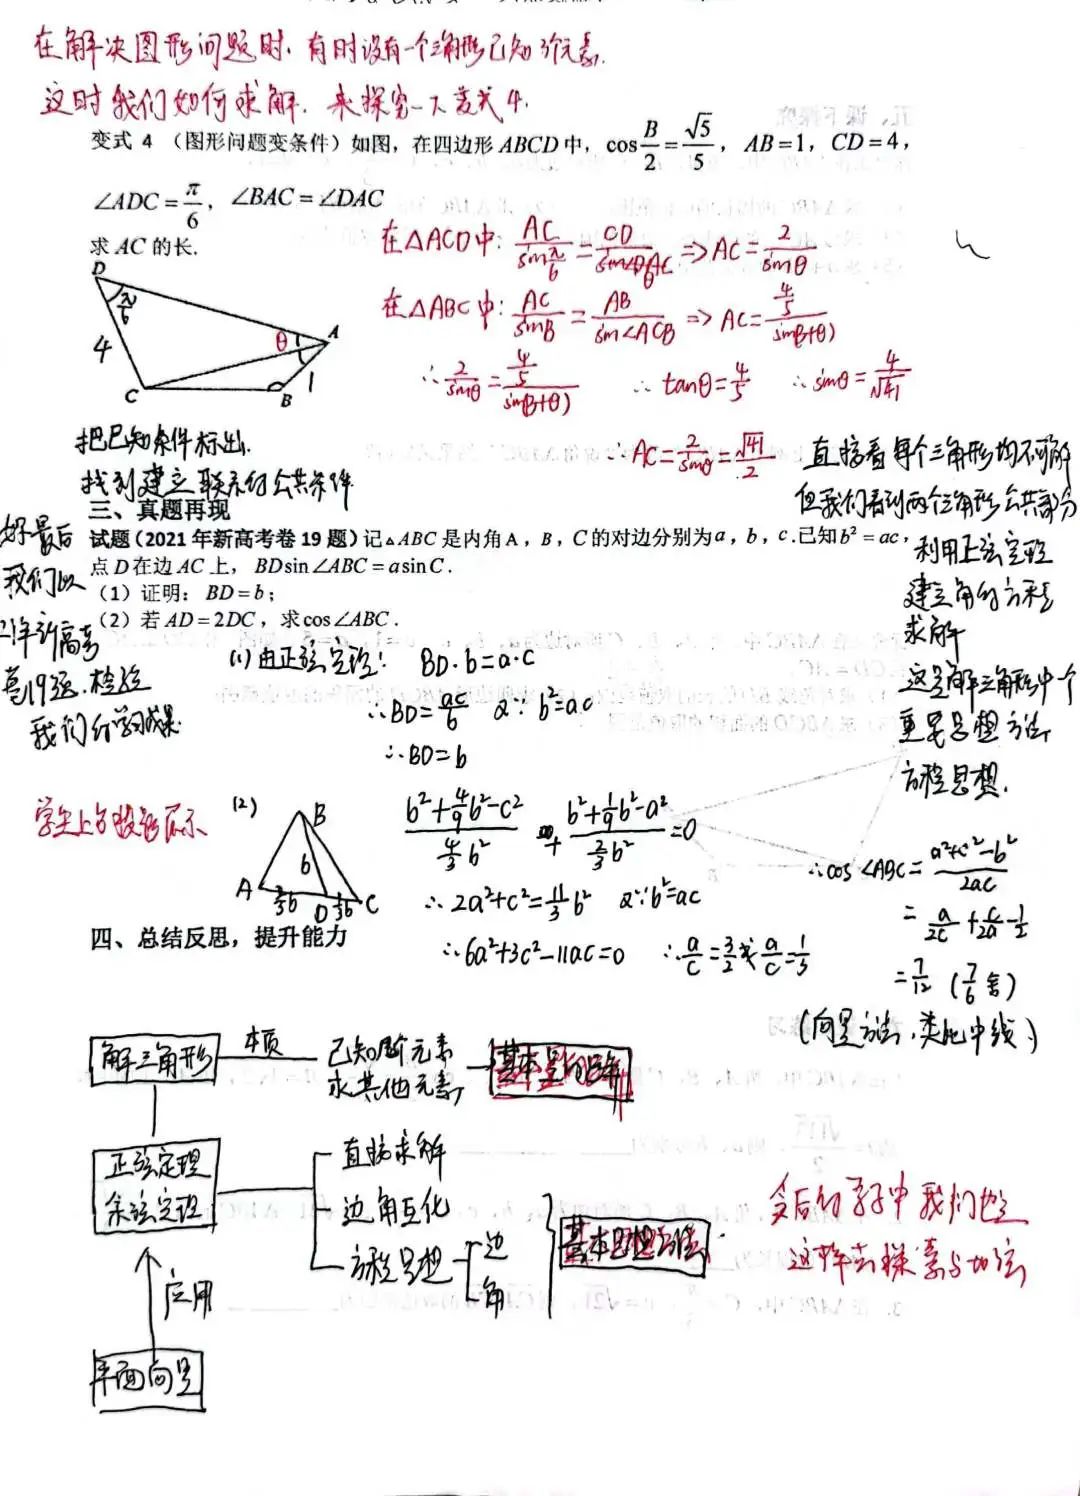 在解决图形问题时,有时没有一个三角形已知3个元素.
这时我们如何求解.来探究一下变式4.
变式 4 （图形问题变条件）如图，在四边形 ABCD 中，cos B/2 = √5/5，AB=1，CD=4，
∠ADC = π/6，∠BAC = ∠DAC
求 AC 的长.
在△ACD中: AC/sin π/6 = CD/sin∠DAC ⇒ AC = 2/sinθ
θ
在△ABC中: AC/sinB = AB/sin∠ACB ⇒ AC = 4/5/sin(B+θ)
∴ 2/sinθ = 4/5/sin(B+θ) ∴ tanθ = 4/5 ∴ sinθ = 4/√41
∴ AC = 2/sinθ = √41/2
D
π/6
4
θ
A
1
C
B
把已知条件标出.
找到建立联系的公共条件
直接看每个三角形均不可解
但我们看到两个三角形公共部分
利用正弦定理
建立角的方程
求解
这是解三角形中一个
重要思想方法
方程思想.
三、真题再现
试题（2021 年新高考卷 19 题）记△ABC 是内角 A，B，C 的对边分别为 a，b，c.已知 b² = ac，
点 D 在边 AC 上， BD sin∠ABC = a sin C .
（1）证明：BD = b；
（2）若 AD = 2DC，求 cos∠ABC .
好最后
我们以
高考
19题.检验
我们
(1) 由正弦定理: BD·b = a·c
∴ BD = ac/b 又∵ b² = ac
∴ BD = b
学生上台投影展示
(2)
B
b
A
2/3b
D
1/3b
C
b²+4/9b²-c²/4/3b² + b²+1/9b²-a²/2/3b² = 0
∴ 2a²+c² = 11/3b² 又∵ b²=ac
∴ 6a²+3c²-11ac=0 ∴ a/c = 3/2 或 a/c = 1/3
∴ cos∠ABC = a²+c²-b²/2ac
= a/2c + c/2a - 1/2
= 7/12 (7/6 舍)
(向量方法,类比中线.)
四、总结反思，提升能力
解三角形
本质
已知3个元素
求其他元素
正弦定理
余弦定理
直接求解
边角互化
方程思想
边
角
基本思想方法
应用
平面向量
今后的学习中我们也应
这样去探索与加